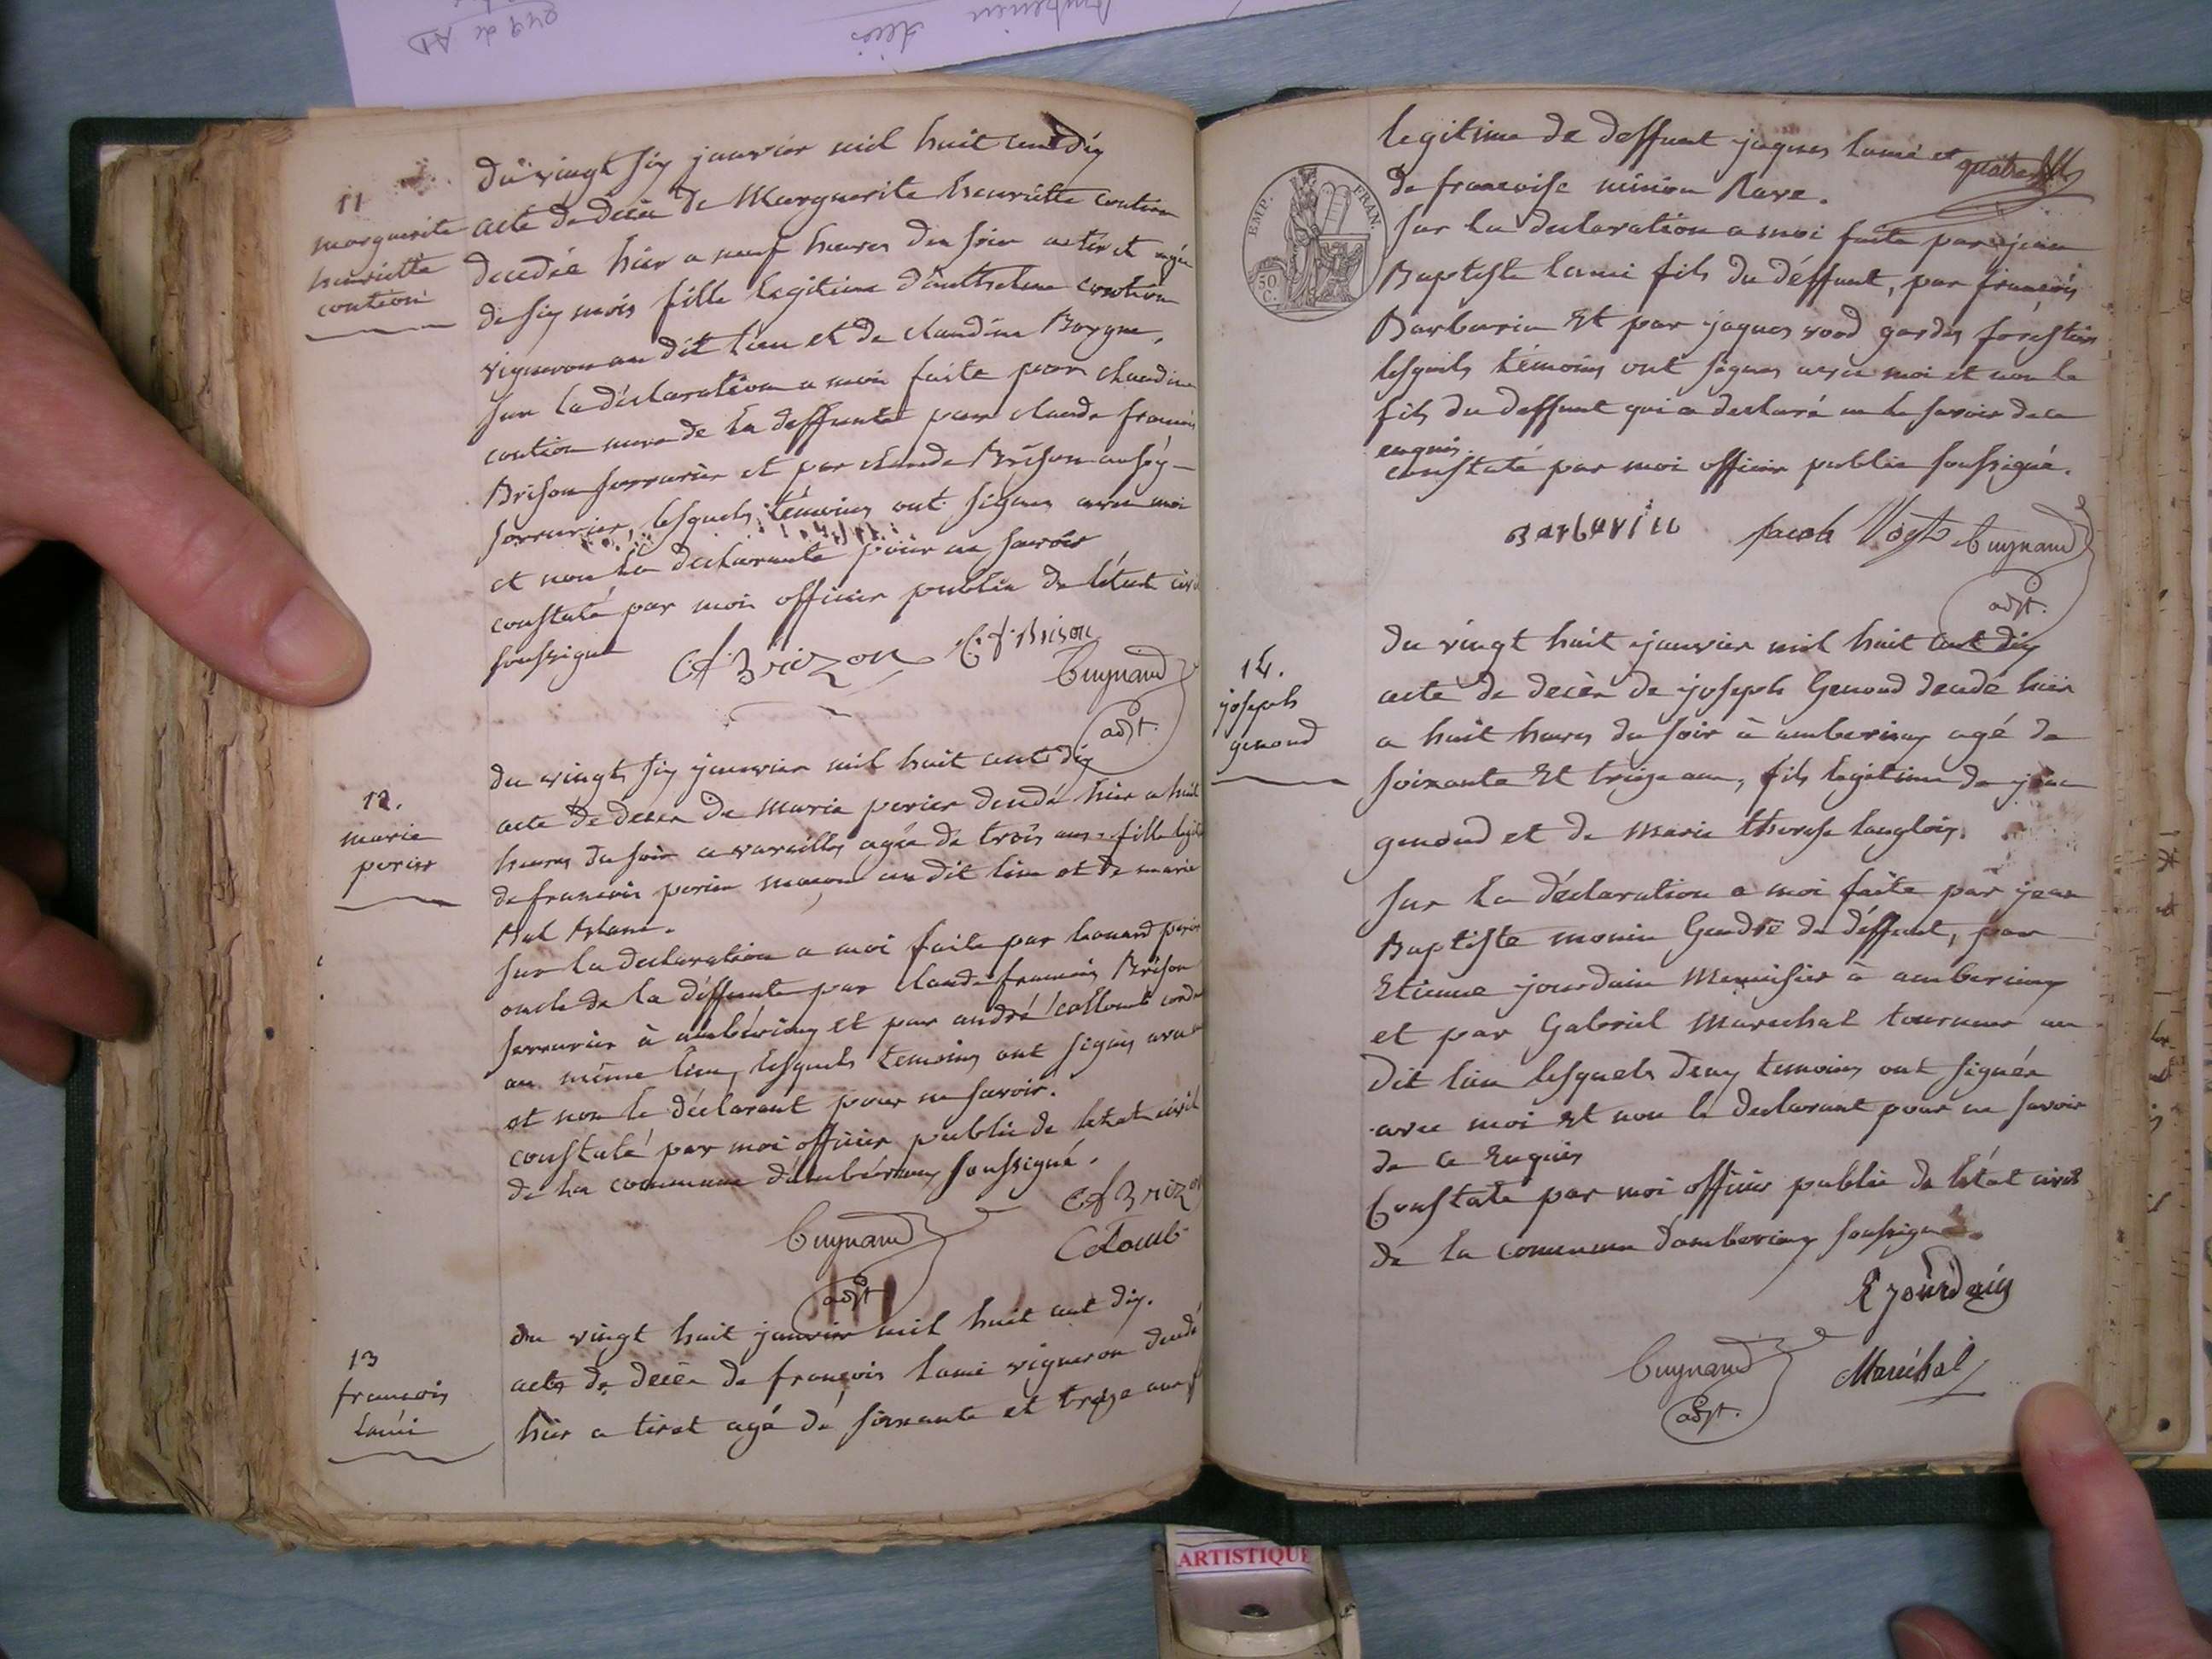 11
marguerite
henriette
coution
du vingt six janvier mil huit cent dix
acte de decès de Marguerite henriette coution
decedée hier a neuf heures du soir a tiret agée
de six mois fille legitime d'anthelme coution
vigneron au dit lieu et de claudine Borgne,
sur la déclaration a moi faite par claudine
coution mere de la deffunte par claude francois
Brison serrurier et par claude Brison aussy
serrurier, lesquels témoins ont signes avec moi
et non la declarante pour ne savoir
constaté par moi officier public de l'état civil
soussigné
Cf Brizon C. f. Brison
Cuynand
adjt.
12.
marie
perier
du vingt six janvier mil huit cent dix
acte de decès de marie perier decedé hier a huit
heures du soir a vareilles agée de trois ans fille legit
de francois perier maçon au dit lieu et de marie
Bal Blanc.
sur la declaration a moi faite par leonard perier
oncle de la déffunte par claude francois Brison
serrurier à ambérieux et par andré Collomb cord
au même lieu, lesquels temoins ont signés avec
et non le déclarant pour ne savoir.
constaté par moi officier public de letat civil
de la commune d'ambérieux soussigné.
Cf Brizon
Cuynand
Colomb
adjt
13
francois
lami
du vingt huit janvier mil huit cent dix.
acte de decès de françois lami vigneron decedé
hier a tiret agé de soixante et treize ans f
legitime de deffunt jaques lami et
quatre
de francoise minion Rave.
EMP. FRAN.
50 C.
sur la declaration a moi faite par jean
Baptiste lami fils du déffunt, par françois
Barbarin Et par jaques vood gardes forestiers
lesquels témoins ont signes avec moi et non le
fils du deffunt qui a declaré ne le savoir de ce
enquis.
constaté par moi officier public soussigné.
Barbarin Jacob Vogt Cuynand
adjt.
14.
joseph
genoud
du vingt huit janvier mil huit cent dix
acte de decès de joseph Genoud decedé hier
a huit heures du soir à amberieux agé de
soixante Et treize ans, fils legitime de jean
genoud et de marie therese langlois.
sur la déclaration a moi faite par jean
Baptiste monin Gendre du déffunt, par
Etienne jourdain Menuisier à amberieux
et par Gabriel Marechal tourneur au
dit lieu lesquels deux temoins ont signés
avec moi Et non le declarant pour ne savoir
de ce Enquis
Constaté par moi officier public de létat civil
de la commune d'amberieux soussigné
E jourdain
Cuynand
Maréchal
adjt.
ARTISTIQUE